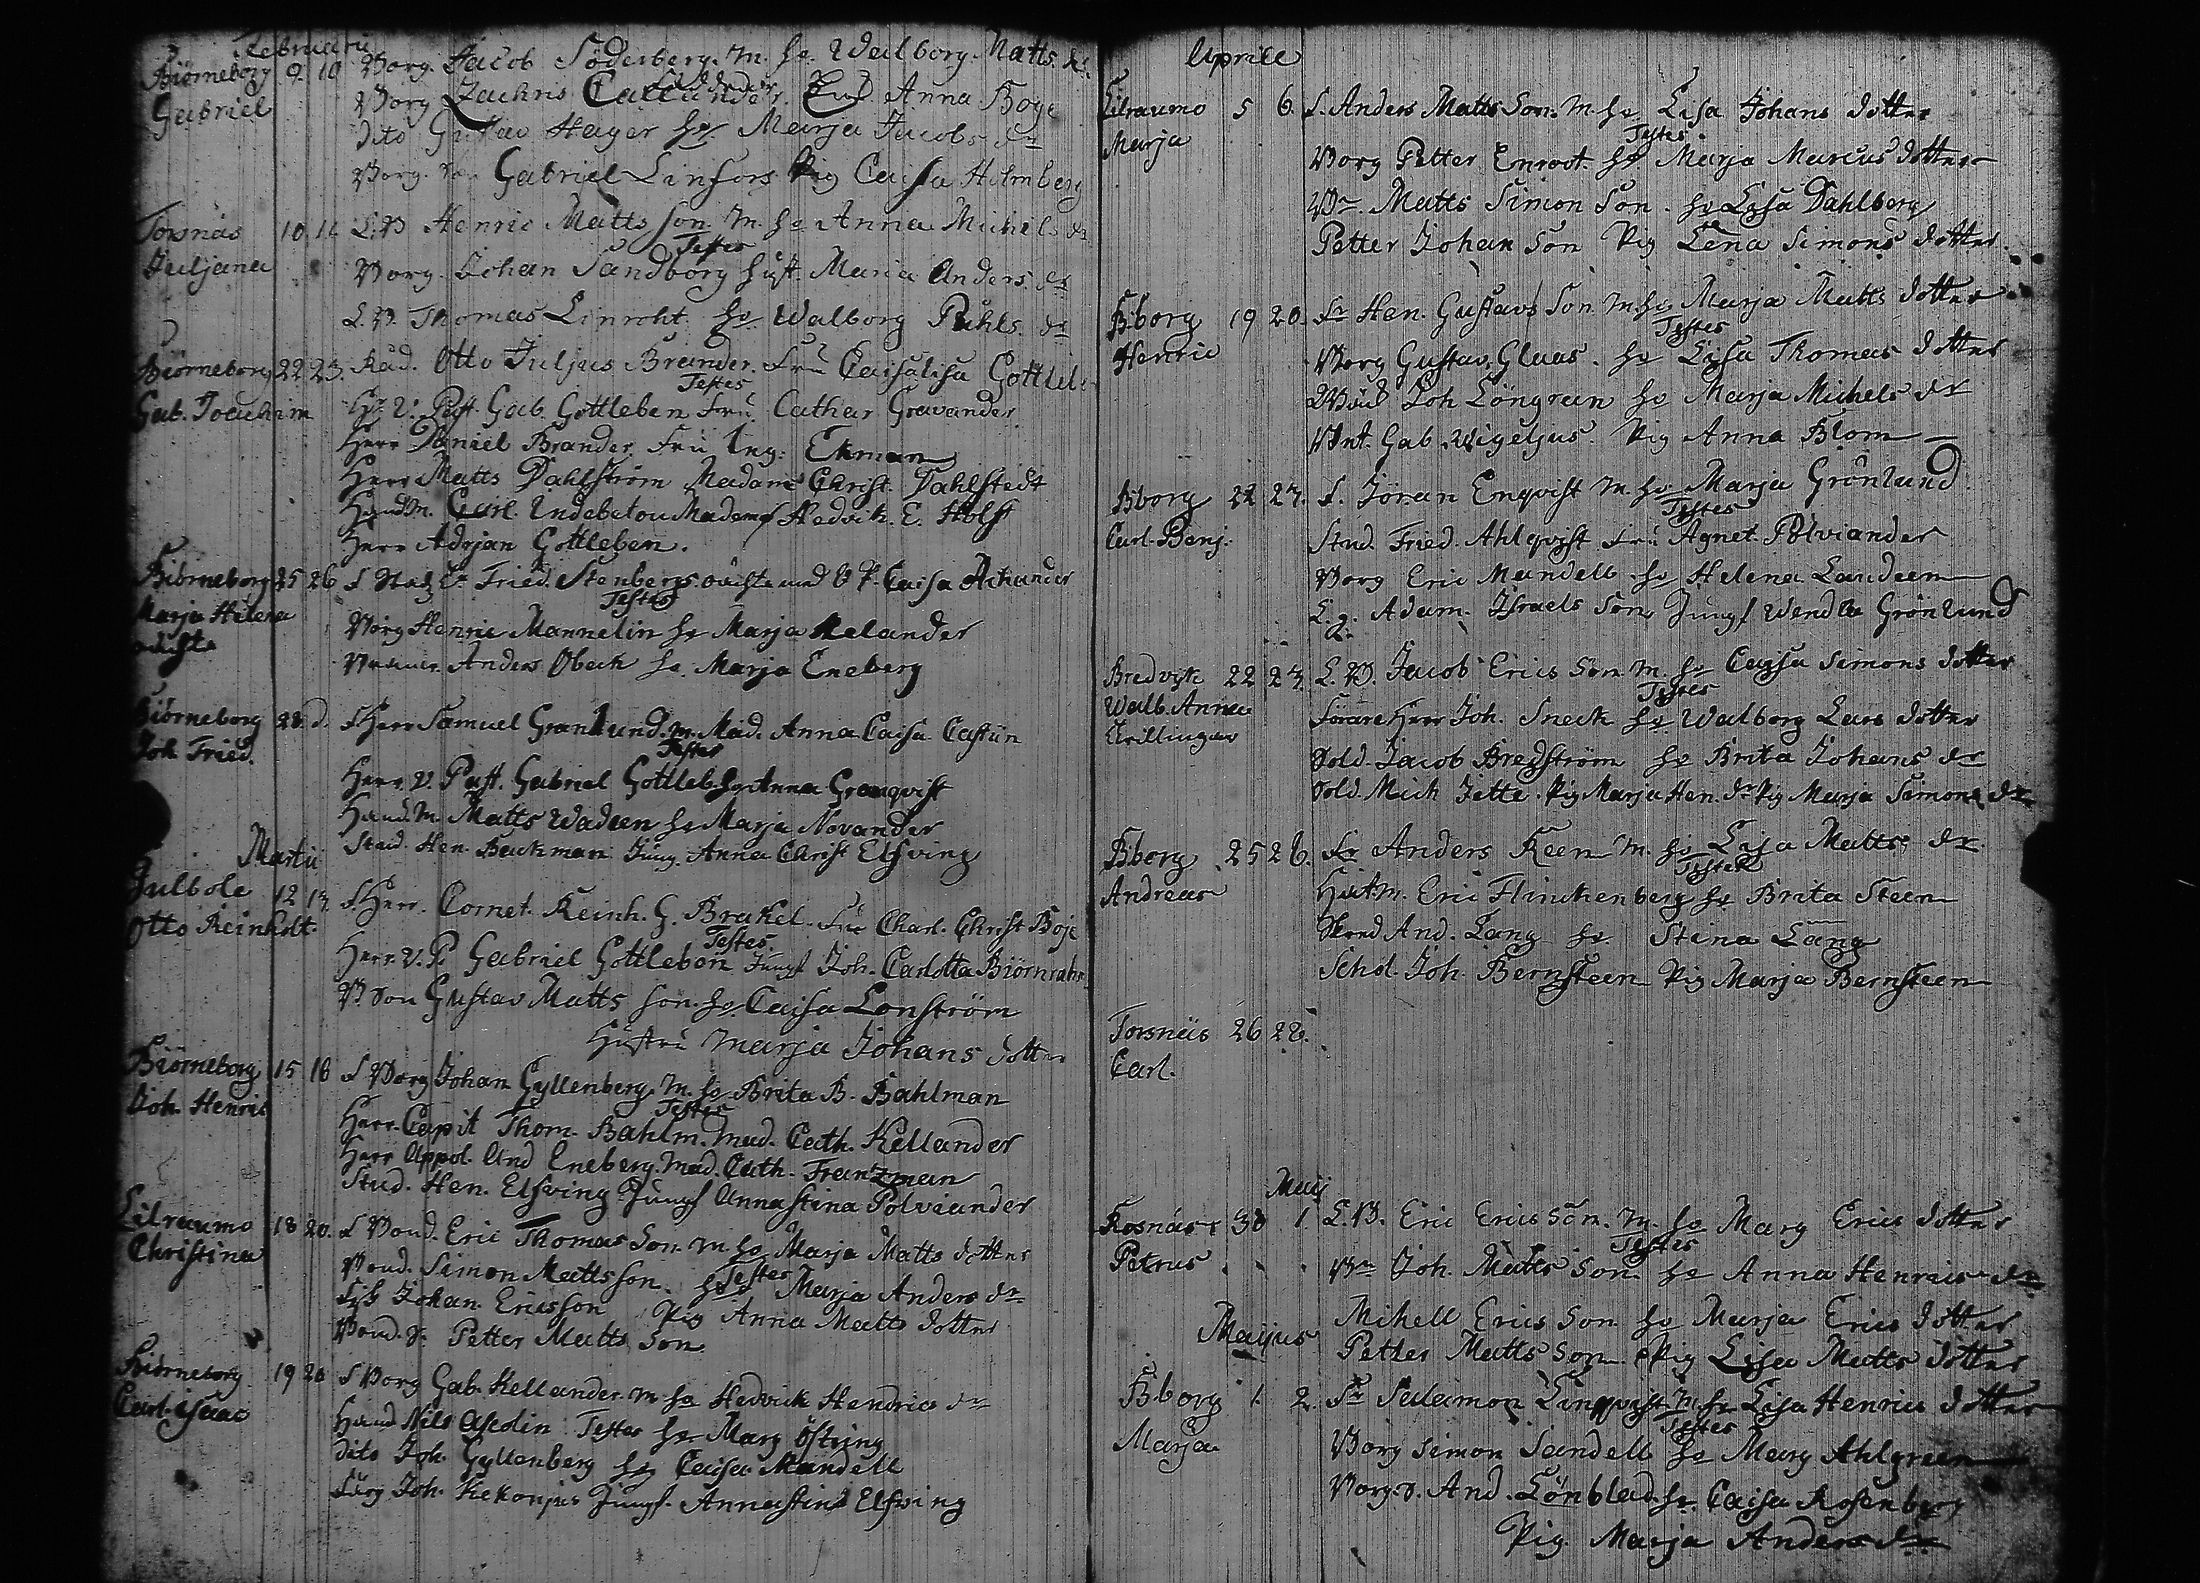 Februarii
Biörneborg 9 10 Borg. Jacob Söderberg. M. H: Walborg Matts dr
Gabriel
Borg Zachris Callunder. Anna Boge
Dito Gustav Hager Ho Marja Jacobs dr
Borg. Gabriel Linfors Pig Caisa Holmberg
Torsnäs 10 11 L.B Henric Matts son M. Ho Anna Michels dr
Testes
Juljana
Borg. Johan Sandborg Hust. Maria Anders dr
L.B. Thomas Linroht Ho Walborg Påhls dr
Biörneborg 22 23. Råd. Otto Juljus Brander. Fru Caisalisa Gottleb
Testes
Gab. Joachim
Hr V. Past. Gab. Gottleben Fru Cathar Gravander
Herr Daniel Brander Fru Ing: Ekman
Herr Matts Dahlström Madame Christ. Dahlstedt
Handm. Carl Indebetou Madems Hedvik. E. Holst
Herr Adrjan Gottleben.
Biörneborg 25 26 Fried. Stenbergs oächta med Caisa Achander
Testes
Marja Helena
oächta
Borg Henric Mannelin Ho Marja Melander
Anders Obeck Ho Marja Eneberg
Biörneborg 28 d. S Herr Samuel Granlund. M. Mad. Anna Caisa Castün
Testes
Joh. Fried.
Herr V. Past. Gabriel Gottleb. Ho Anna Granqvist
Handm. Matts Wadeen Ho Marja Novander
Stud. Hen. Backman Jung. Anna Christ Elfving
Martii
Gulbole 12 13 S Herr. Cornet. Reinh. G. Brakel. Fru Charl. Christ Boje
Testes
Otto Reinholt.
Herr. V. P. Gabriel Gottleben Jungf Joh. Carlotta Biörnrahm
B. Son Gustav Matts son. Ho Caisa Lonström
Hustru Marja Johans dotter
Biörneborg 15 16 S Borg Johan Gyllenberg. M. Ho Brita B. Bahlman
Testes
Joh. Henric
Herr. Capit Thom. Bahlm. Mad. Cath. Kellander
Herr Appol. And Eneberg. Mad. Cath. Frantzman
Stud. Hen. Elfving Jungf Annastina Polviander
Lilraumo 18 20. S Bond. Eric Thomas Son. M Ho Marja Matts dotter
Christina
Bond. Simon Mattsson. Ho Marja Anders dr
Testes
Johan Ericsson Pig Anna Matts dotter
Bond. S. Petter Matts Son
Biörneborg 19 20 S Borg Gab. Kellander. M Ho Hedvik Hendrics dr
Carl isaac
Hand Nils Asolin Testes Ho Marg Östring
Dito Joh. Gyllenberg Ho Caisa Mandell
Joh. Kekonjus Jungf. Annastina Elfving
Aprill
Lilraumo 5 6. S. Anders Matts Son. M. Ho Lisa Johans dotter
Testes
Marja
Borg Petter Enroot. Ho Marja Marcus dotter
Bn. Matts Simon Son. Ho Lisa Dahlberg
Petter Johan Son Pig Lena Simons dotter
Bborg 19 20. Sr Hen. Gustavs Son M. Ho Marja Matts dotter
Testes
Henric
Borg Gustav. Glaas. Ho Lisa Thomas dotter
Joh Löngren Ho Marja Michels dr
Gab. Wigeljus. Pig Anna Blom
Bborg 22 23. S. Jöran Enqvist M. Ho Marja Grönlund
Testes
Carl Benj.
Stud. Fried. Ahlqvist Fru Agnet Polviander
Borg Eric Mandell Ho Helena Landeen
L.g. Adam. Israels Son Jungf Wendla Grönlund
Bredvik 22 23. L.B. Jacob Erics Son M. Ho Caisa Simons dotter
Testes
Walb. Anna
tvillingar
Förare Herr Joh. Sneck Ho Walborg Lars dotter
Sold. Jacob Bredström Ho Brita Johans dr
Sold. Mich Jette. Pig Marja Hen. dr Pig Marja Simons dr
Bborg 25 26. Sr Anders Keen M. Ho Lisa Matts dr
Testes
Andreas
Hatm. Eric Flinckenberg Ho Brita Steen
And. Lang Ho Stina Lang
Schol. Joh. Bernsteen Pig Marja Bernsteen
Torsnäs 26 28.
Carl.
Maij
Kosnäs 30 1. L.B. Eric Erics Son. M. Ho Marg Erics dotter
Testes
Petrus
Bn Joh. Matts Son Ho Anna Henrics dr
Mihell Erics Son Ho Marja Erics dotter
Petter Matts Son Pig Lisa Matts dotter
Maijus
Bborg 1. 2. Sr Salamon Linqvist. M. Ho Lisa Henrics dotter
Testes
Marja
Borg Simon Sandell Ho Marg Ahlgreen
Borg. S. And. Lönblad. Ho. Caisa Rosenberg
Pig. Marja Anders dr